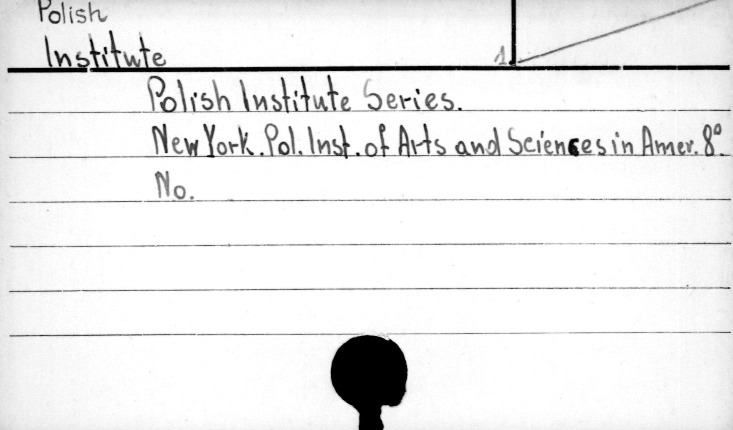 Polish
Institute
1.
Polish Institute Series.
New York. Pol. Inst. of Arts and Sciences in Amer. 8°.
No.